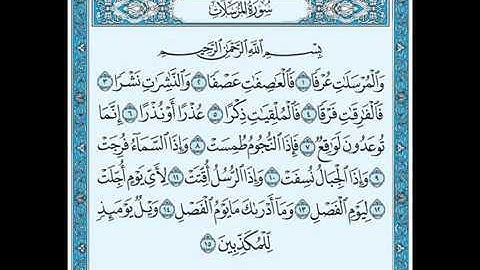 سُورَةُ المُرْسَلَات
بِسْمِ اللَّهِ الرَّحْمَٰنِ الرَّحِيمِ
وَالْمُرْسَلَاتِ عُرْفًا ١ فَالْعَاصِفَاتِ عَصْفًا ٢ وَالنَّاشِرَاتِ نَشْرًا ٣
فَالْفَارِقَاتِ فَرْقًا ٤ فَالْمُلْقِيَاتِ ذِكْرًا ٥ عُذْرًا أَوْ نُذْرًا ٦ إِنَّمَا
تُوعَدُونَ لَوَاقِعٌ ٧ فَإِذَا النُّجُومُ طُمِسَتْ ٨ وَإِذَا السَّمَاءُ فُرِجَتْ
٩ وَإِذَا الْجِبَالُ نُسِفَتْ ١٠ وَإِذَا الرُّسُلُ أُقِّتَتْ ١١ لِأَيِّ يَوْمٍ أُجِّلَتْ
١٢ لِيَوْمِ الْفَصْلِ ١٣ وَمَا أَدْرَاكَ مَا يَوْمُ الْفَصْلِ ١٤ وَيْلٌ يَوْمَئِذٍ
لِّلْمُكَذِّبِينَ ١٥